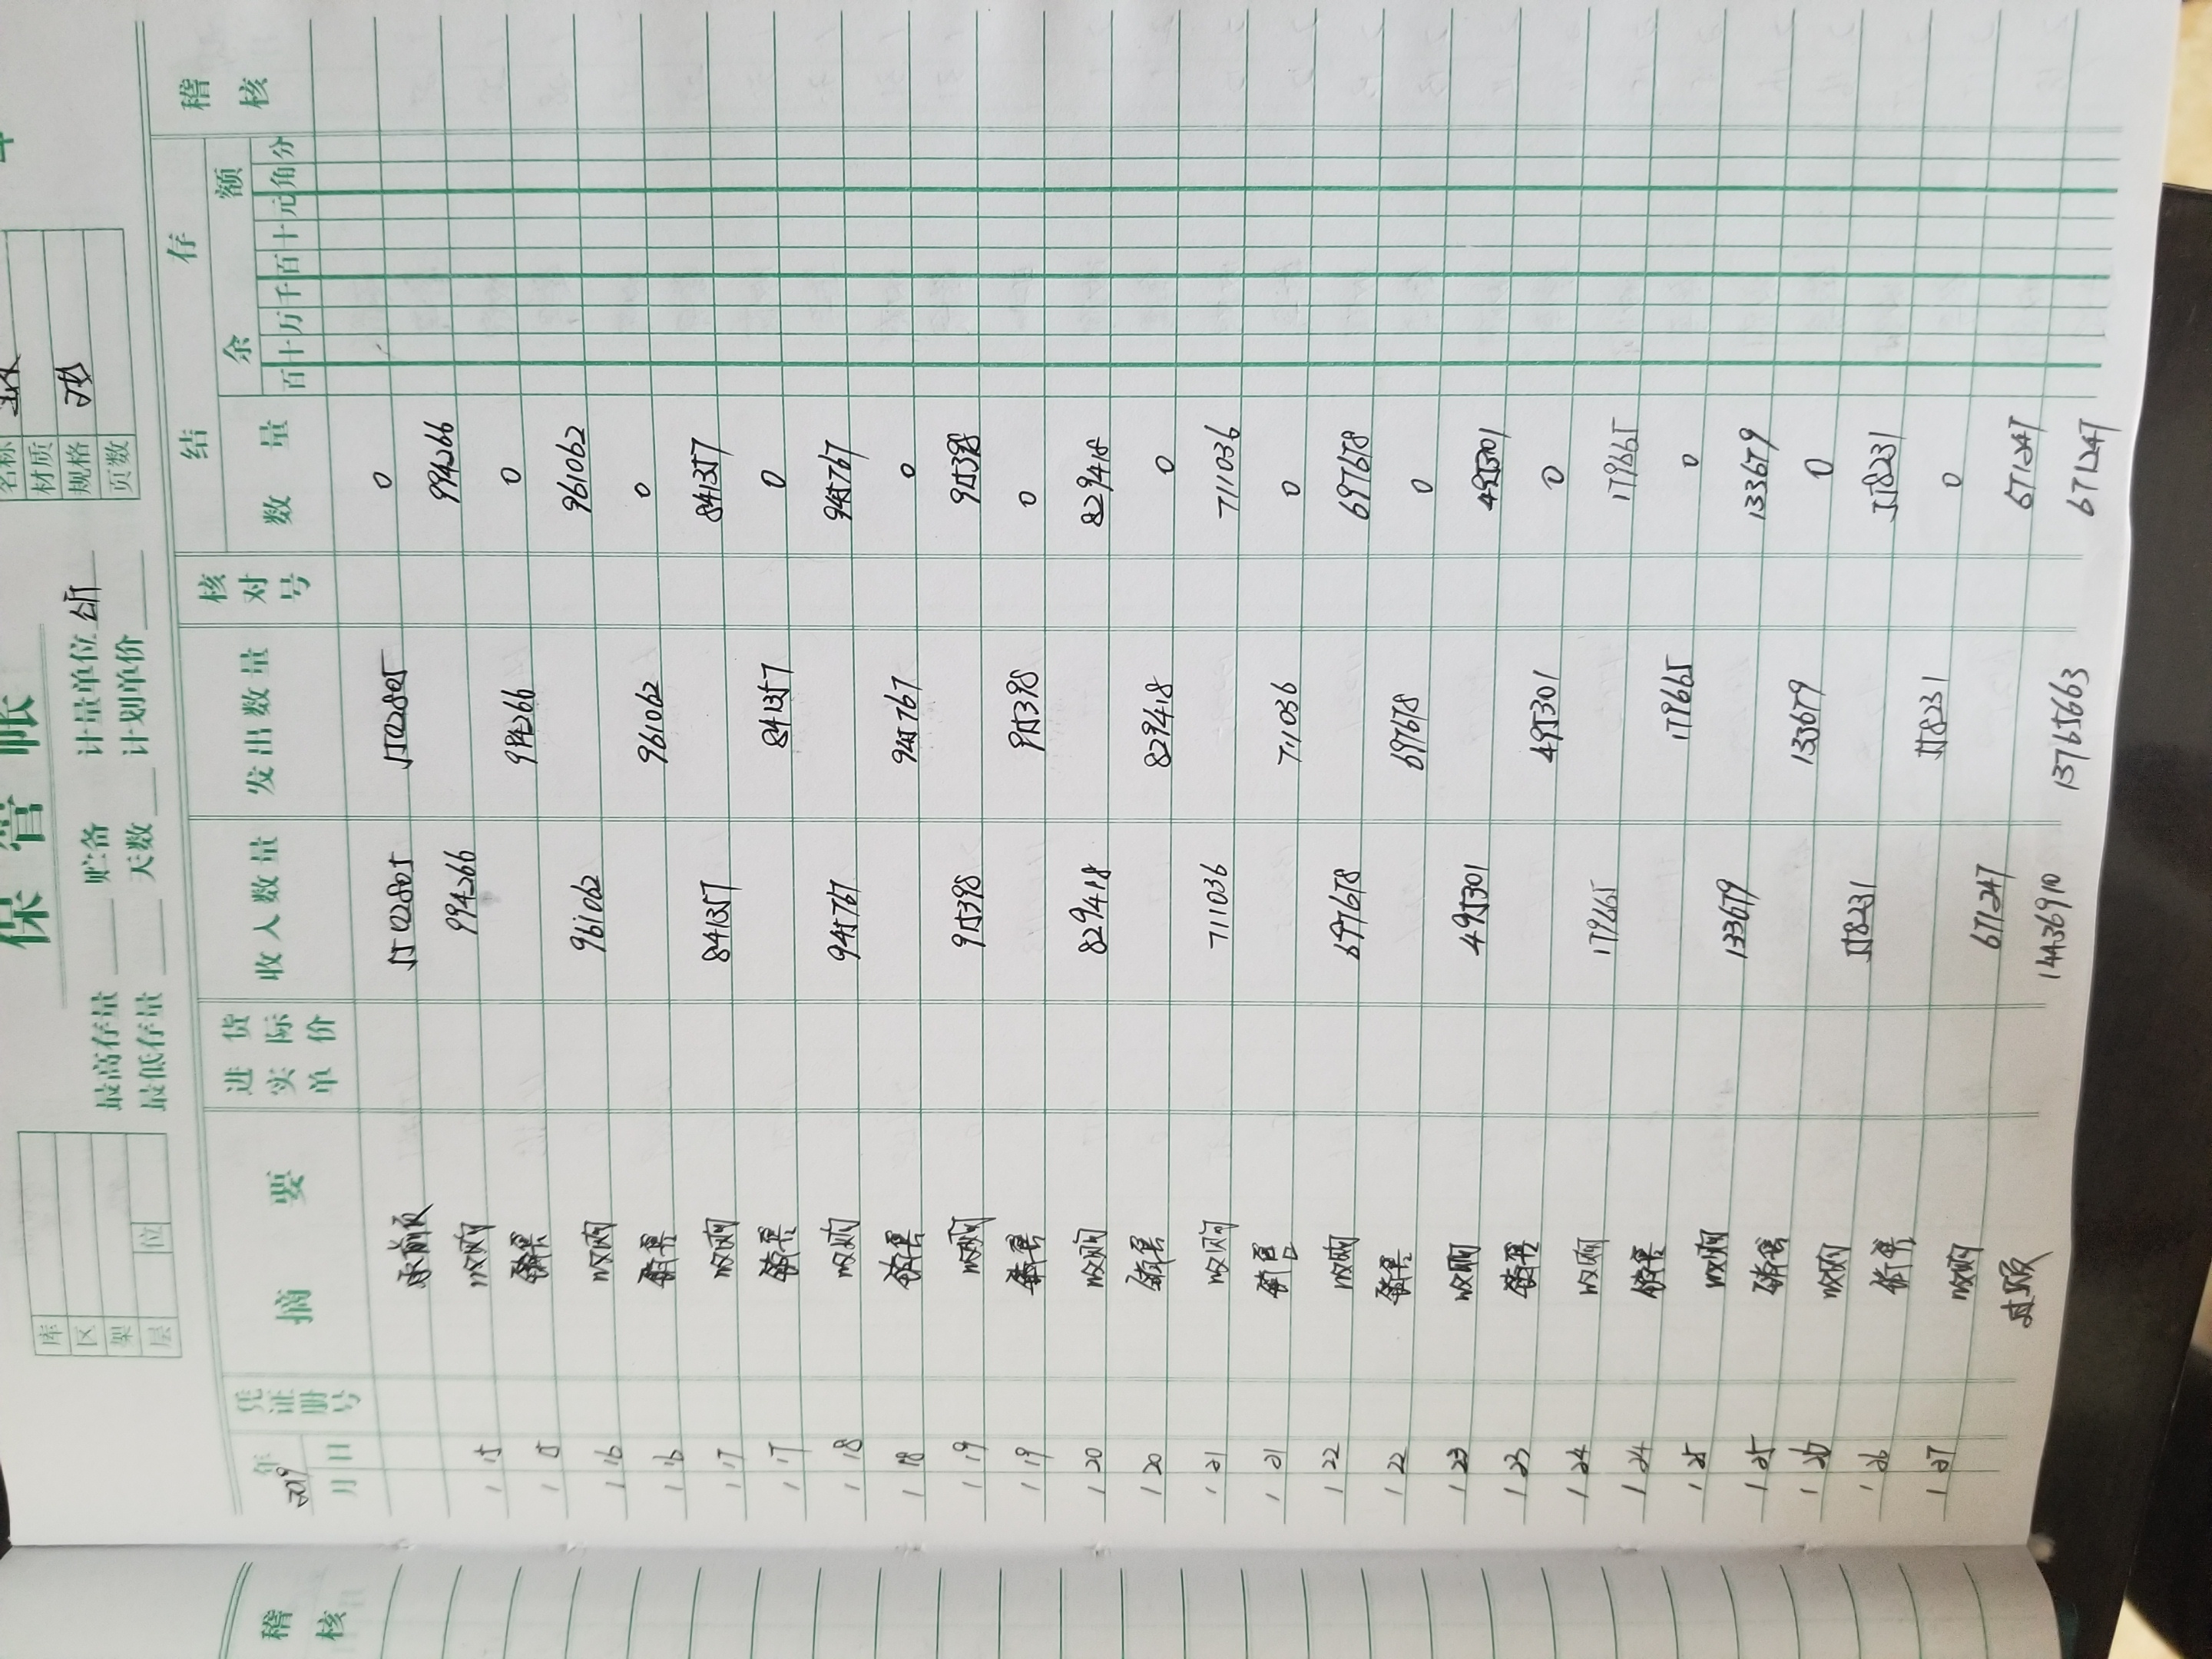 保管帐
库
区
架
层 位
最高存量 贮备 计量单位 公斤
最低存量 天数 计划单价
名称
材质
规格
页数
稽核
2019年
月 日 凭证册号 摘要 进货实际单价 收入数量 发出数量 核对号 结存 数量 余额 百十万千百十元角分 稽核
承前页 5502805 5502805 0
1 15 收购 994266 994266
1 15 销售 994266 0
1 16 收购 961062 961062
1 16 销售 961062 0
1 17 收购 841357 841357
1 17 销售 841357 0
1 18 收购 945767 945767
1 18 销售 945767 0
1 19 收购 915398 915398
1 19 销售 915398 0
1 20 收购 829418 829418
1 20 销售 829418 0
1 21 收购 711036 711036
1 21 销售 711036 0
1 22 收购 697678 697678
1 22 销售 697678 0
1 23 收购 495301 495301
1 23 销售 495301 0
1 24 收购 179665 179665
1 24 销售 179665 0
1 25 收购 133679 133679
1 25 销售 133679 0
1 26 收购 558231 558231
1 26 销售 558231 0
1 27 收购 671247 671247
过次页 14436910 13765663 671247